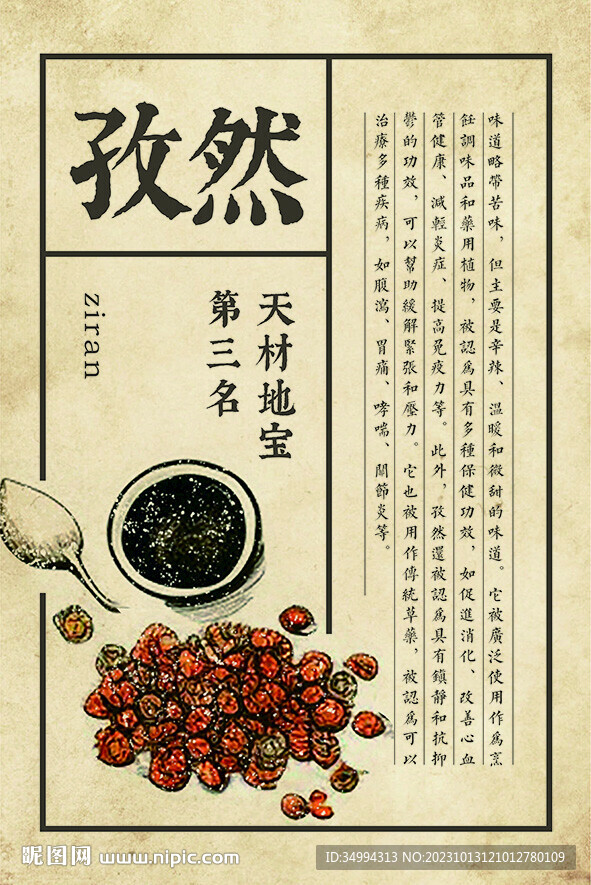 孜然
味道略帶苦味，但主要是辛辣、溫暖和微甜的味道。它被廣泛使用作爲烹
飪調味品和藥用植物，被認爲具有多種保健功效，如促進消化、改善心血
管健康、減輕炎症、提高免疫力等。此外，孜然還被認爲具有鎮靜和抗抑
鬱的功效，可以幫助緩解緊張和壓力。它也被用作傳統草藥，被認爲可以
治療多種疾病，如腹瀉、胃痛、哮喘、關節炎等。
天材地宝
第三名
ziran
昵图网 www.nipic.com
ID:34994313 NO:20231013121012780109